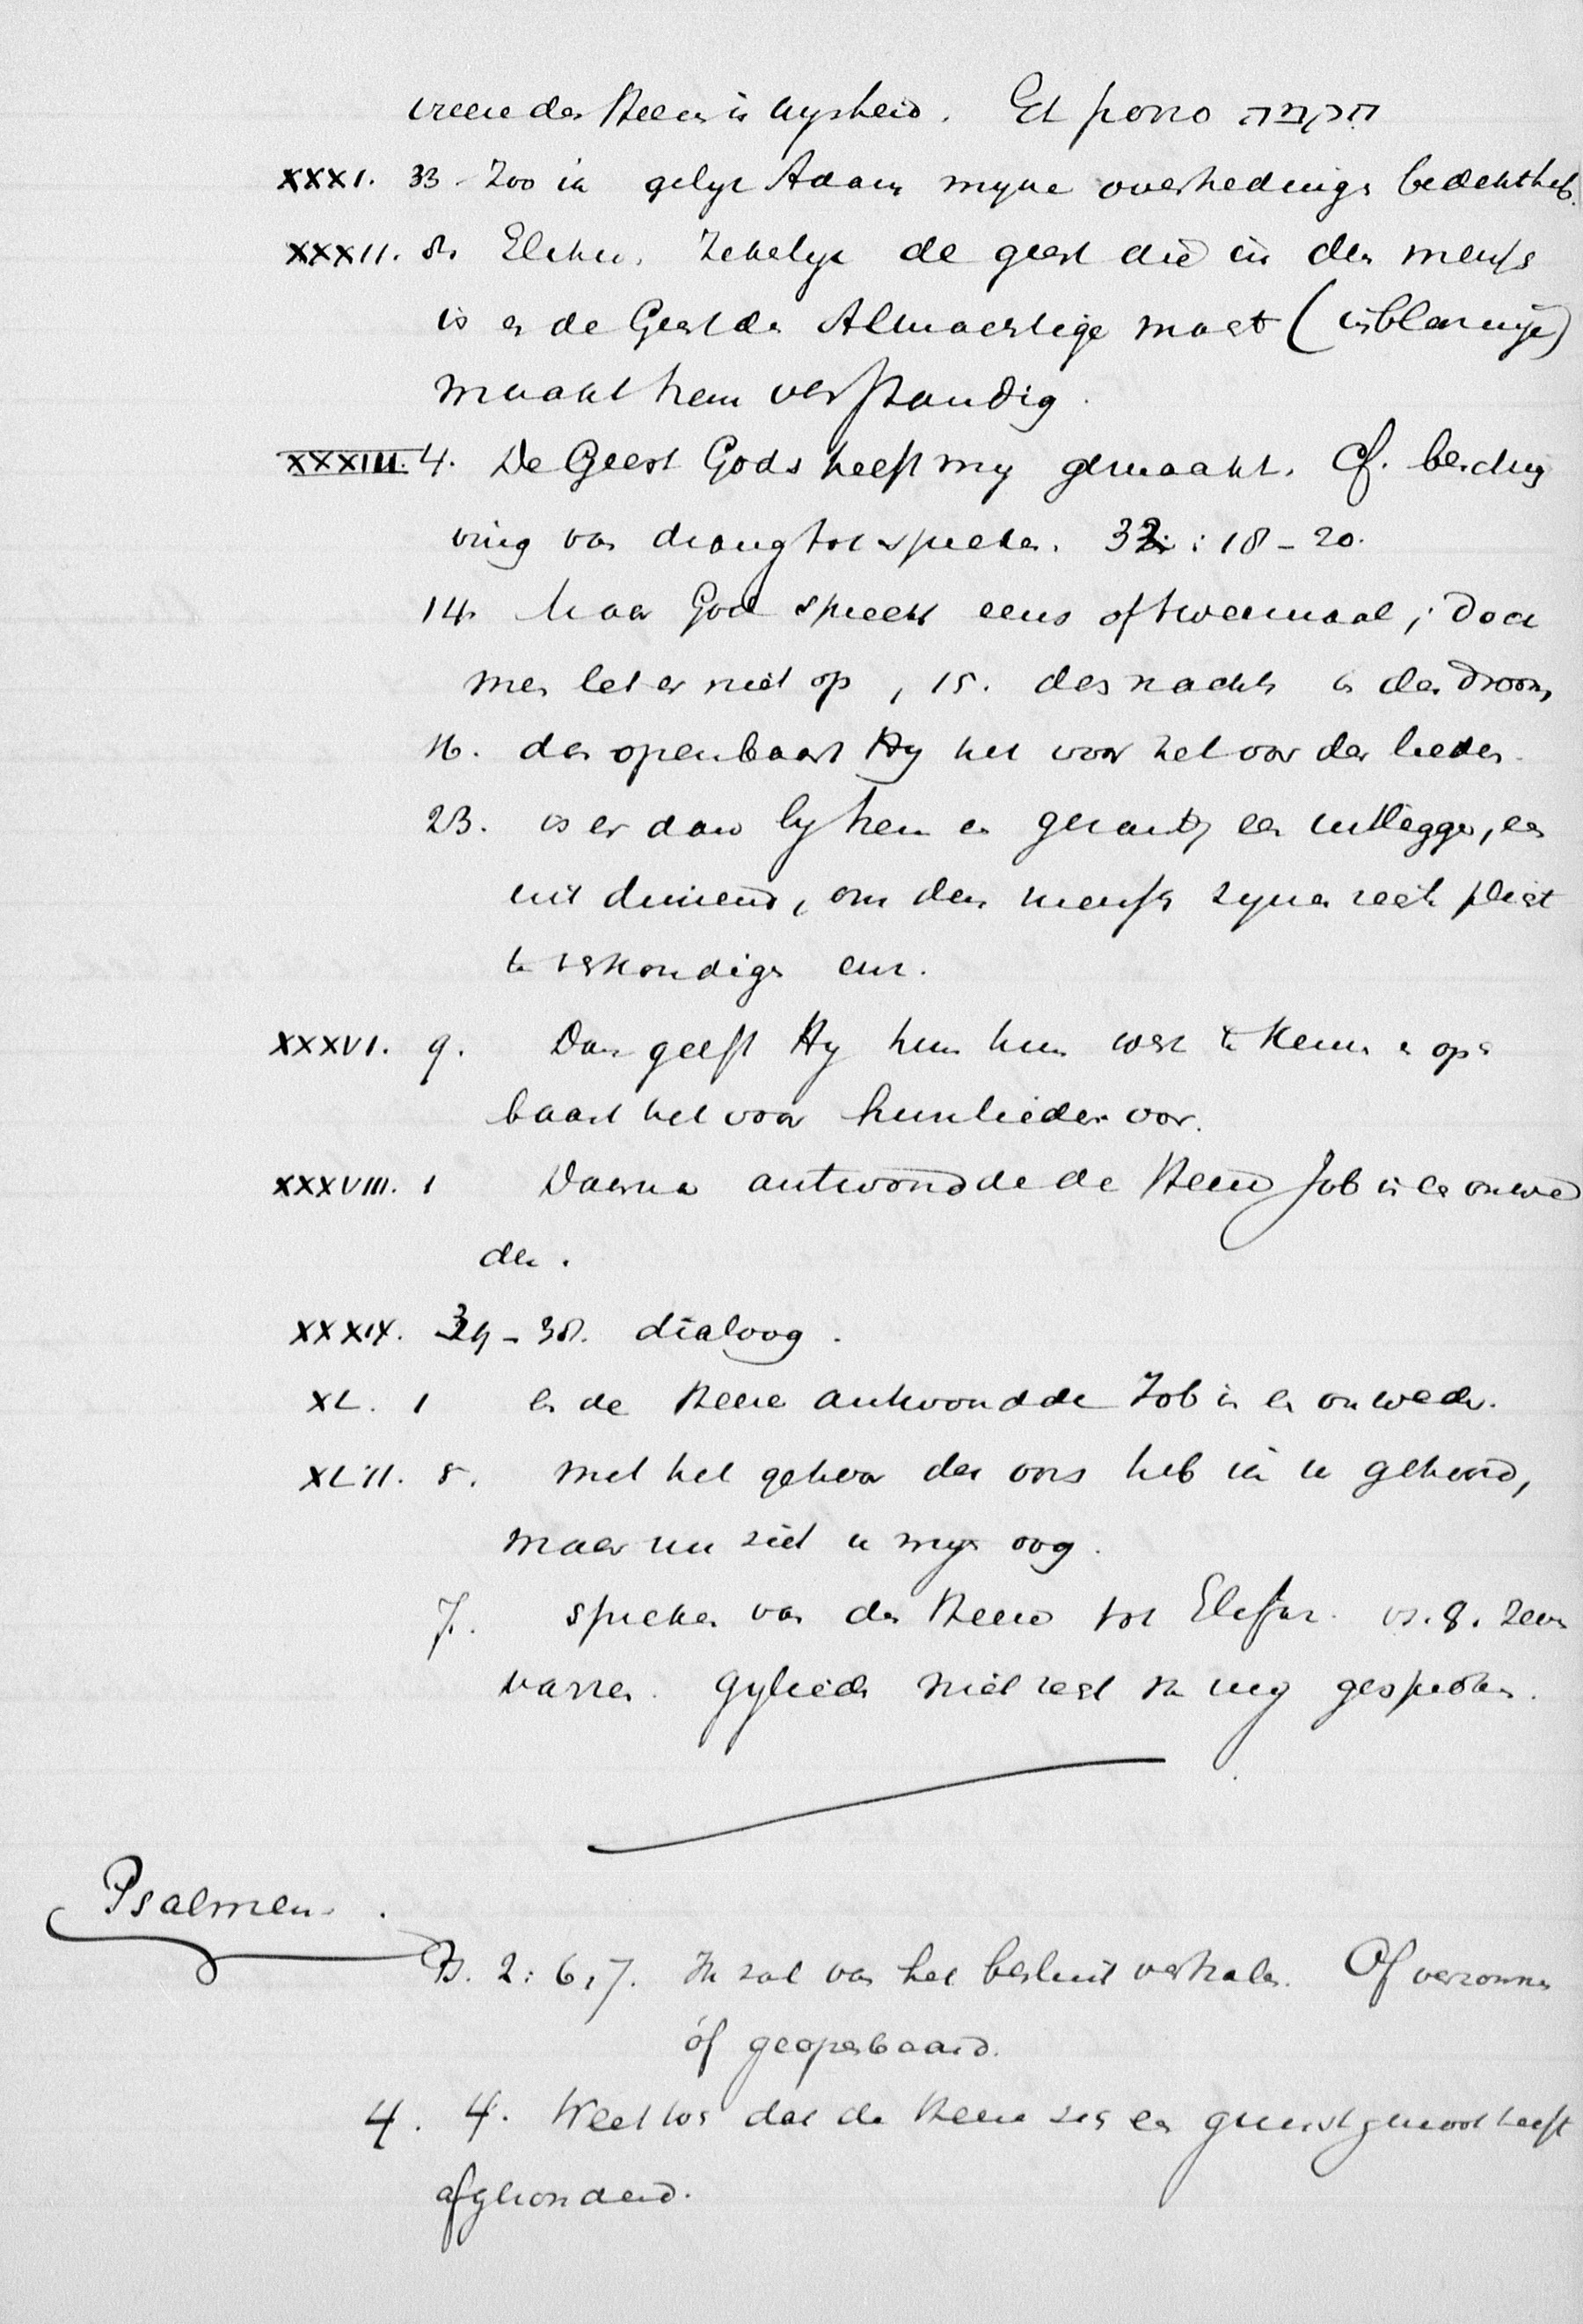 vreeze des Heeren is wysheid. Et porro חקמה
XXXI. 33. Zoo ik gelyk Adam myne overtredingen bedekt heb.
XXXII. 8. Elihu. Zekelyk de geest die in den mensch
is en de Geest des Almachtige maakt (inblazinge)
maakt hem verstandig.
XXXIII. 4. De Geest Gods heeft my gemaakt. Cf. beschrij
ving van drang tot spreken. 32 : 18 - 20.
14. Maar God spreekt eens of tweemaal; doch
men let er niet op, 15. des nachts in den droom,
16. dan openbaart Hy het voor het oor der lieden.
23. is er dan by hem een gezant, een uitlegger, een
uit duizend, om den mensch zynen recht plicht
te verkondigen enz.
XXXVI. 9. Dan geeft Hy hun hun werk te kennen en open
baart het voor hunlieder oor.
XXXVIII. 1 Daarna antwoordde de Heere Job uit een onwe
der.
XXXIX. 34 - 38. dialoog.
XL. 1 En de Heere antwoordde Job uit een onweder.
XLII. 5. met het gehoor des oors heb ik u gehoord,
maar nu ziet u myn oog.
7. spreken van den Heere tot Elifaz. vs. 8. zeven
varren. Gylieden niet recht van my gesproken.
Psalmen.
Ps. 2 : 6, 7. Ik zal van het besluit verhalen. Of verzonnen
óf geopenbaard.
4. 4. Weet toch dat de Heere zich een gunstgenoot heeft
afgezonderd.